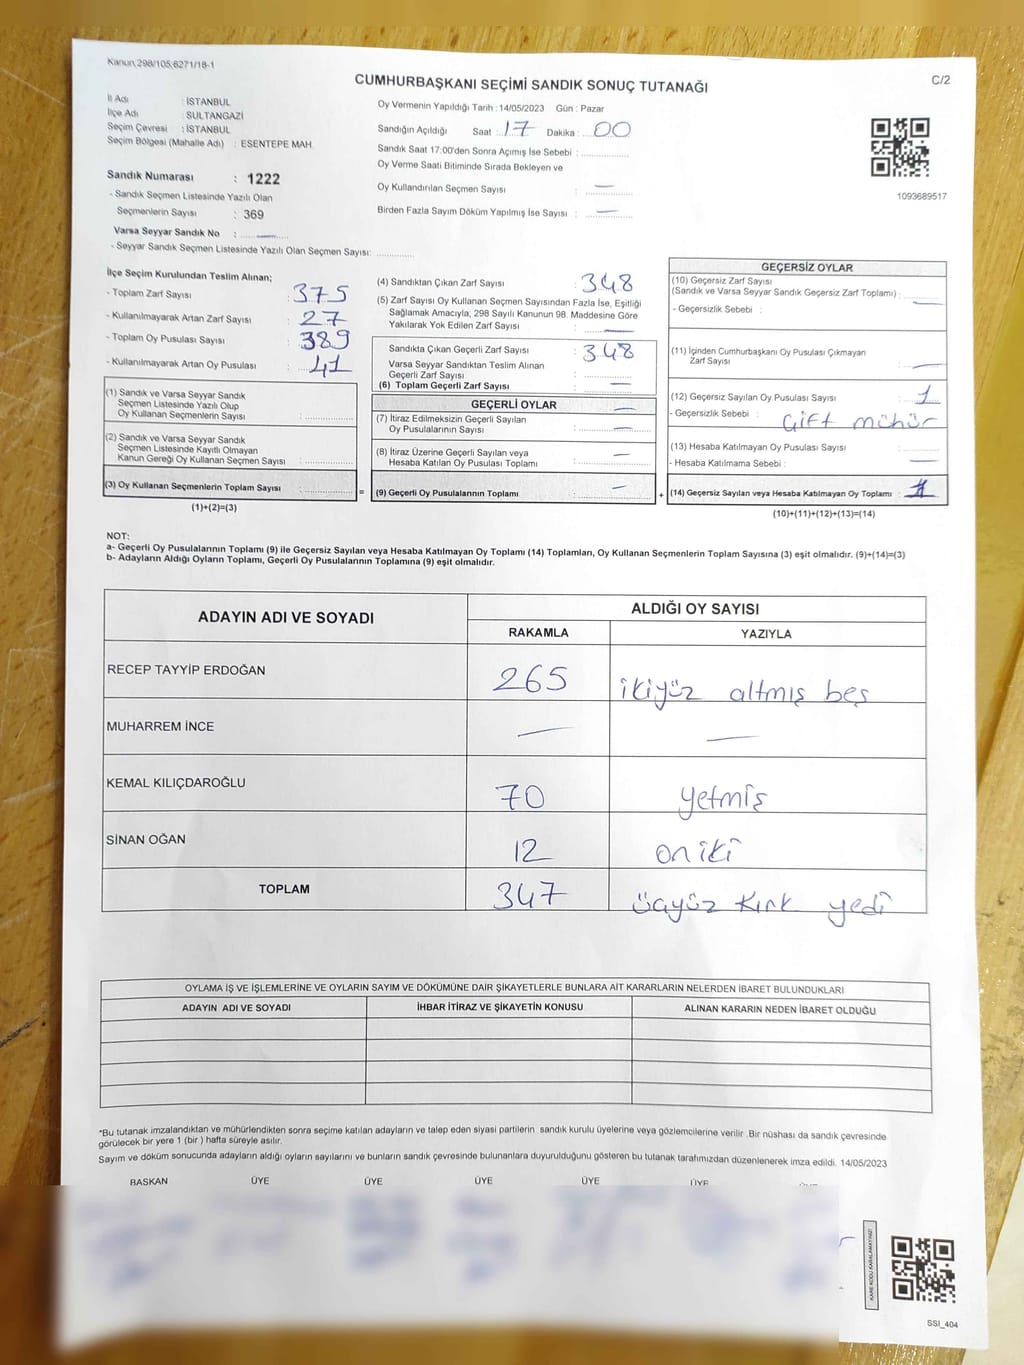 Kanun,298/105;6271/18-1
CUMHURBAŞKANI SEÇİMİ SANDIK SONUÇ TUTANAĞI
C/2
İl Adı : İSTANBUL
İlçe Adı : SULTANGAZİ
Seçim Çevresi : İSTANBUL
Seçim Bölgesi (Mahalle Adı) : ESENTEPE MAH.
Sandık Numarası : 1222
- Sandık Seçmen Listesinde Yazılı Olan
Seçmenlerin Sayısı : 369
Varsa Seyyar Sandık No : —
- Seyyar Sandık Seçmen Listesinde Yazılı Olan Seçmen Sayısı:
Oy Vermenin Yapıldığı Tarih : 14/05/2023 Gün : Pazar
Sandığın Açıldığı Saat : 17 Dakika : 00
Sandık Saat 17:00'den Sonra Açımış İse Sebebi :
Oy Verme Saati Bitiminde Sırada Bekleyen ve
Oy Kullandırılan Seçmen Sayısı : —
Birden Fazla Sayım Döküm Yapılmış İse Sayısı : —
1093689517
İlçe Seçim Kurulundan Teslim Alınan;
- Toplam Zarf Sayısı : 375
- Kullanılmayarak Artan Zarf Sayısı : 27
- Toplam Oy Pusulası Sayısı : 389
- Kullanılmayarak Artan Oy Pusulası : 41
(1) Sandık ve Varsa Seyyar Sandık
Seçmen Listesinde Yazılı Olup
Oy Kullanan Seçmenlerin Sayısı :
(2) Sandık ve Varsa Seyyar Sandık
Seçmen Listesinde Kayıtlı Olmayan
Kanun Gereği Oy Kullanan Seçmen Sayısı :
(3) Oy Kullanan Seçmenlerin Toplam Sayısı :
(1)+(2)=(3)
=
(4) Sandıktan Çıkan Zarf Sayısı : 348
(5) Zarf Sayısı Oy Kullanan Seçmen Sayısından Fazla İse, Eşitliği
Sağlamak Amacıyla; 298 Sayılı Kanunun 98. Maddesine Göre
Yakılarak Yok Edilen Zarf Sayısı : —
Sandıkta Çıkan Geçerli Zarf Sayısı : 348
Varsa Seyyar Sandıktan Teslim Alınan
Geçerli Zarf Sayısı :
(6) Toplam Geçerli Zarf Sayısı : —
GEÇERLİ OYLAR —
(7) İtiraz Edilmeksizin Geçerli Sayılan
Oy Pusulalarının Sayısı : —
(8) İtiraz Üzerine Geçerli Sayılan veya
Hesaba Katılan Oy Pusulası Toplamı : —
(9) Geçerli Oy Pusulalarının Toplamı : —
+
GEÇERSİZ OYLAR
(10) Geçersiz Zarf Sayısı
(Sandık ve Varsa Seyyar Sandık Geçersiz Zarf Toplamı) : —
- Geçersizlik Sebebi :
(11) İçinden Cumhurbaşkanı Oy Pusulası Çıkmayan
Zarf Sayısı : —
(12) Geçersiz Sayılan Oy Pusulası Sayısı : 1
- Geçersizlik Sebebi : Çift mühür
(13) Hesaba Katılmayan Oy Pusulası Sayısı :
- Hesaba Katılmama Sebebi : —
(14) Geçersiz Sayılan veya Hesaba Katılmayan Oy Toplamı : 1
(10)+(11)+(12)+(13)=(14)
NOT:
a- Geçerli Oy Pusulalarının Toplamı (9) ile Geçersiz Sayılan veya Hesaba Katılmayan Oy Toplamı (14) Toplamları, Oy Kullanan Seçmenlerin Toplam Sayısına (3) eşit olmalıdır. (9)+(14)=(3)
b- Adayların Aldığı Oyların Toplamı, Geçerli Oy Pusulalarının Toplamına (9) eşit olmalıdır.
ADAYIN ADI VE SOYADI ALDIĞI OY SAYISI
RAKAMLA YAZIYLA
RECEP TAYYİP ERDOĞAN 265 ikiyüz altmış beş
MUHARREM İNCE — —
KEMAL KILIÇDAROĞLU 70 yetmiş
SİNAN OĞAN 12 oniki
TOPLAM 347 üçyüz kırk yedi
OYLAMA İŞ VE İŞLEMLERİNE VE OYLARIN SAYIM VE DÖKÜMÜNE DAİR ŞİKAYETLERLE BUNLARA AİT KARARLARIN NELERDEN İBARET BULUNDUKLARI
ADAYIN ADI VE SOYADI İHBAR İTİRAZ VE ŞİKAYETİN KONUSU ALINAN KARARIN NEDEN İBARET OLDUĞU
*Bu tutanak imzalandıktan ve mühürlendikten sonra seçime katılan adayların ve talep eden siyasi partilerin sandık kurulu üyelerine veya gözlemcilerine verilir .Bir nüshası da sandık çevresinde
görülecek bir yere 1 (bir ) hafta süreyle asılır.
Sayım ve döküm sonucunda adayların aldığı oyların sayılarını ve bunların sandık çevresinde bulunanlara duyurulduğunu gösteren bu tutanak tarafımızdan düzenlenerek imza edildi. 14/05/2023
BAŞKAN ÜYE ÜYE ÜYE ÜYE ÜYE
KARE KODU KARALAMAYINIZ!
SSI_404